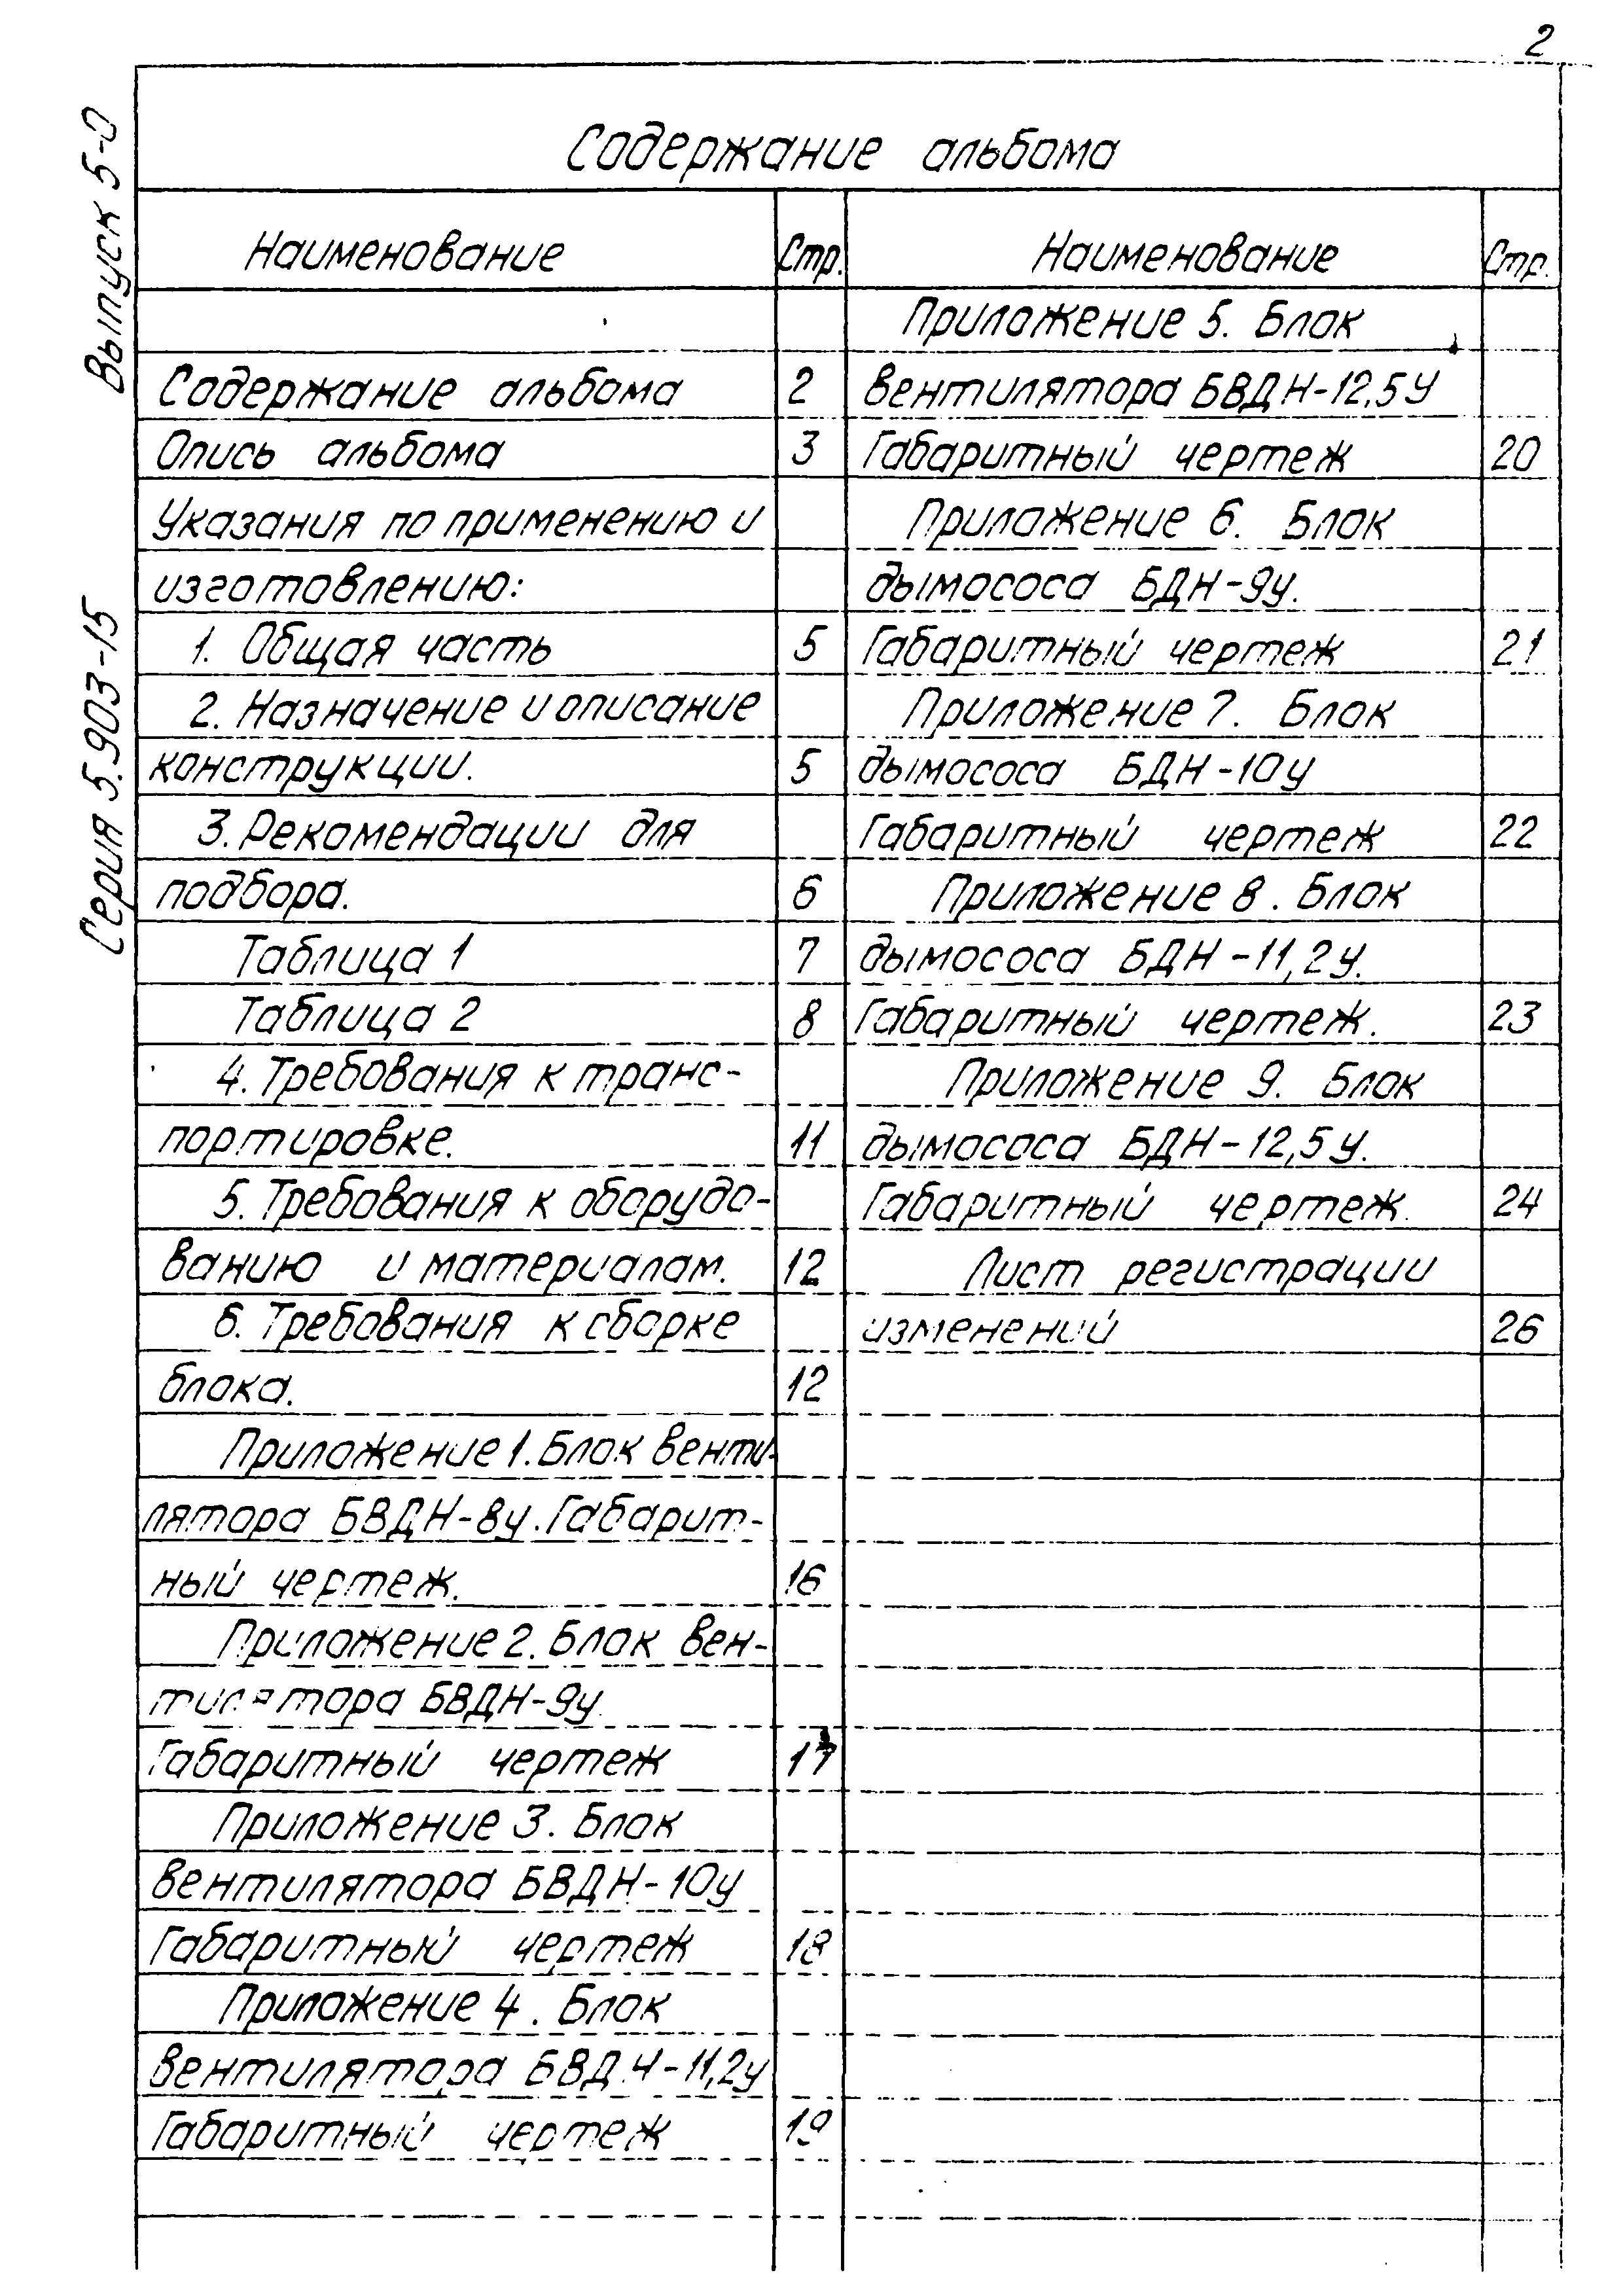 2
Выпуск 5-0
Серия 5.903-15
Содержание альбома
Наименование
Стр.
Содержание альбома 2
Опись альбома 3
Указания по применению и
изготовлению:
1. Общая часть 5
2. Назначение и описание
конструкции. 5
3. Рекомендации для
подбора. 6
Таблица 1 7
Таблица 2 8
4. Требования к транс-
портировке. 11
5. Требования к оборудо-
ванию и материалам. 12
6. Требования к сборке
блока. 12
Приложение 1. Блок венти-
лятора БВДН-8у. Габарит-
ный чертеж. 16
Приложение 2. Блок вен-
тилятора БВДН-9у.
Габаритный чертеж 17
Приложение 3. Блок
вентилятора БВДН-10у
Габаритный чертеж 18
Приложение 4. Блок
вентилятора БВДН-11,2у
Габаритный чертеж 19
Наименование
Стр.
Приложение 5. Блок
вентилятора БВДН-12,5У
Габаритный чертеж 20
Приложение 6. Блок
дымососа БДН-9у.
Габаритный чертеж 21
Приложение 7. Блок
дымососа БДН-10у
Габаритный чертеж 22
Приложение 8. Блок
дымососа БДН-11,2у.
Габаритный чертеж. 23
Приложение 9. Блок
дымососа БДН-12,5у.
Габаритный чертеж. 24
Лист регистрации
изменений 26